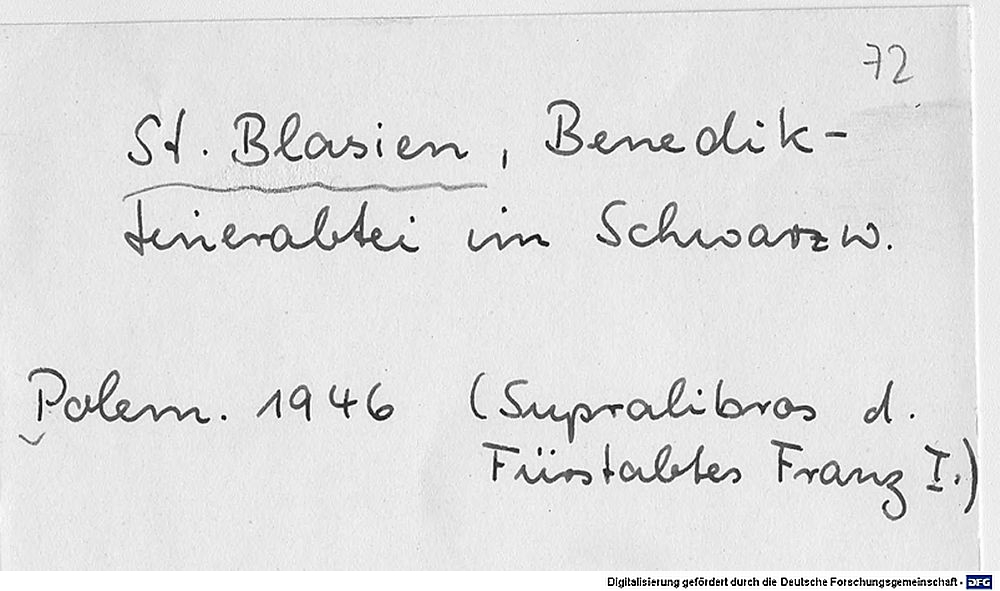 72
St. Blasien, Benedik-
tinerabtei im Schwarzw.
Polem. 1946 (Supralibros d.
Fürstabtes Franz I.)
Digitalisierung gefördert durch die Deutsche Forschungsgemeinschaft - DFG